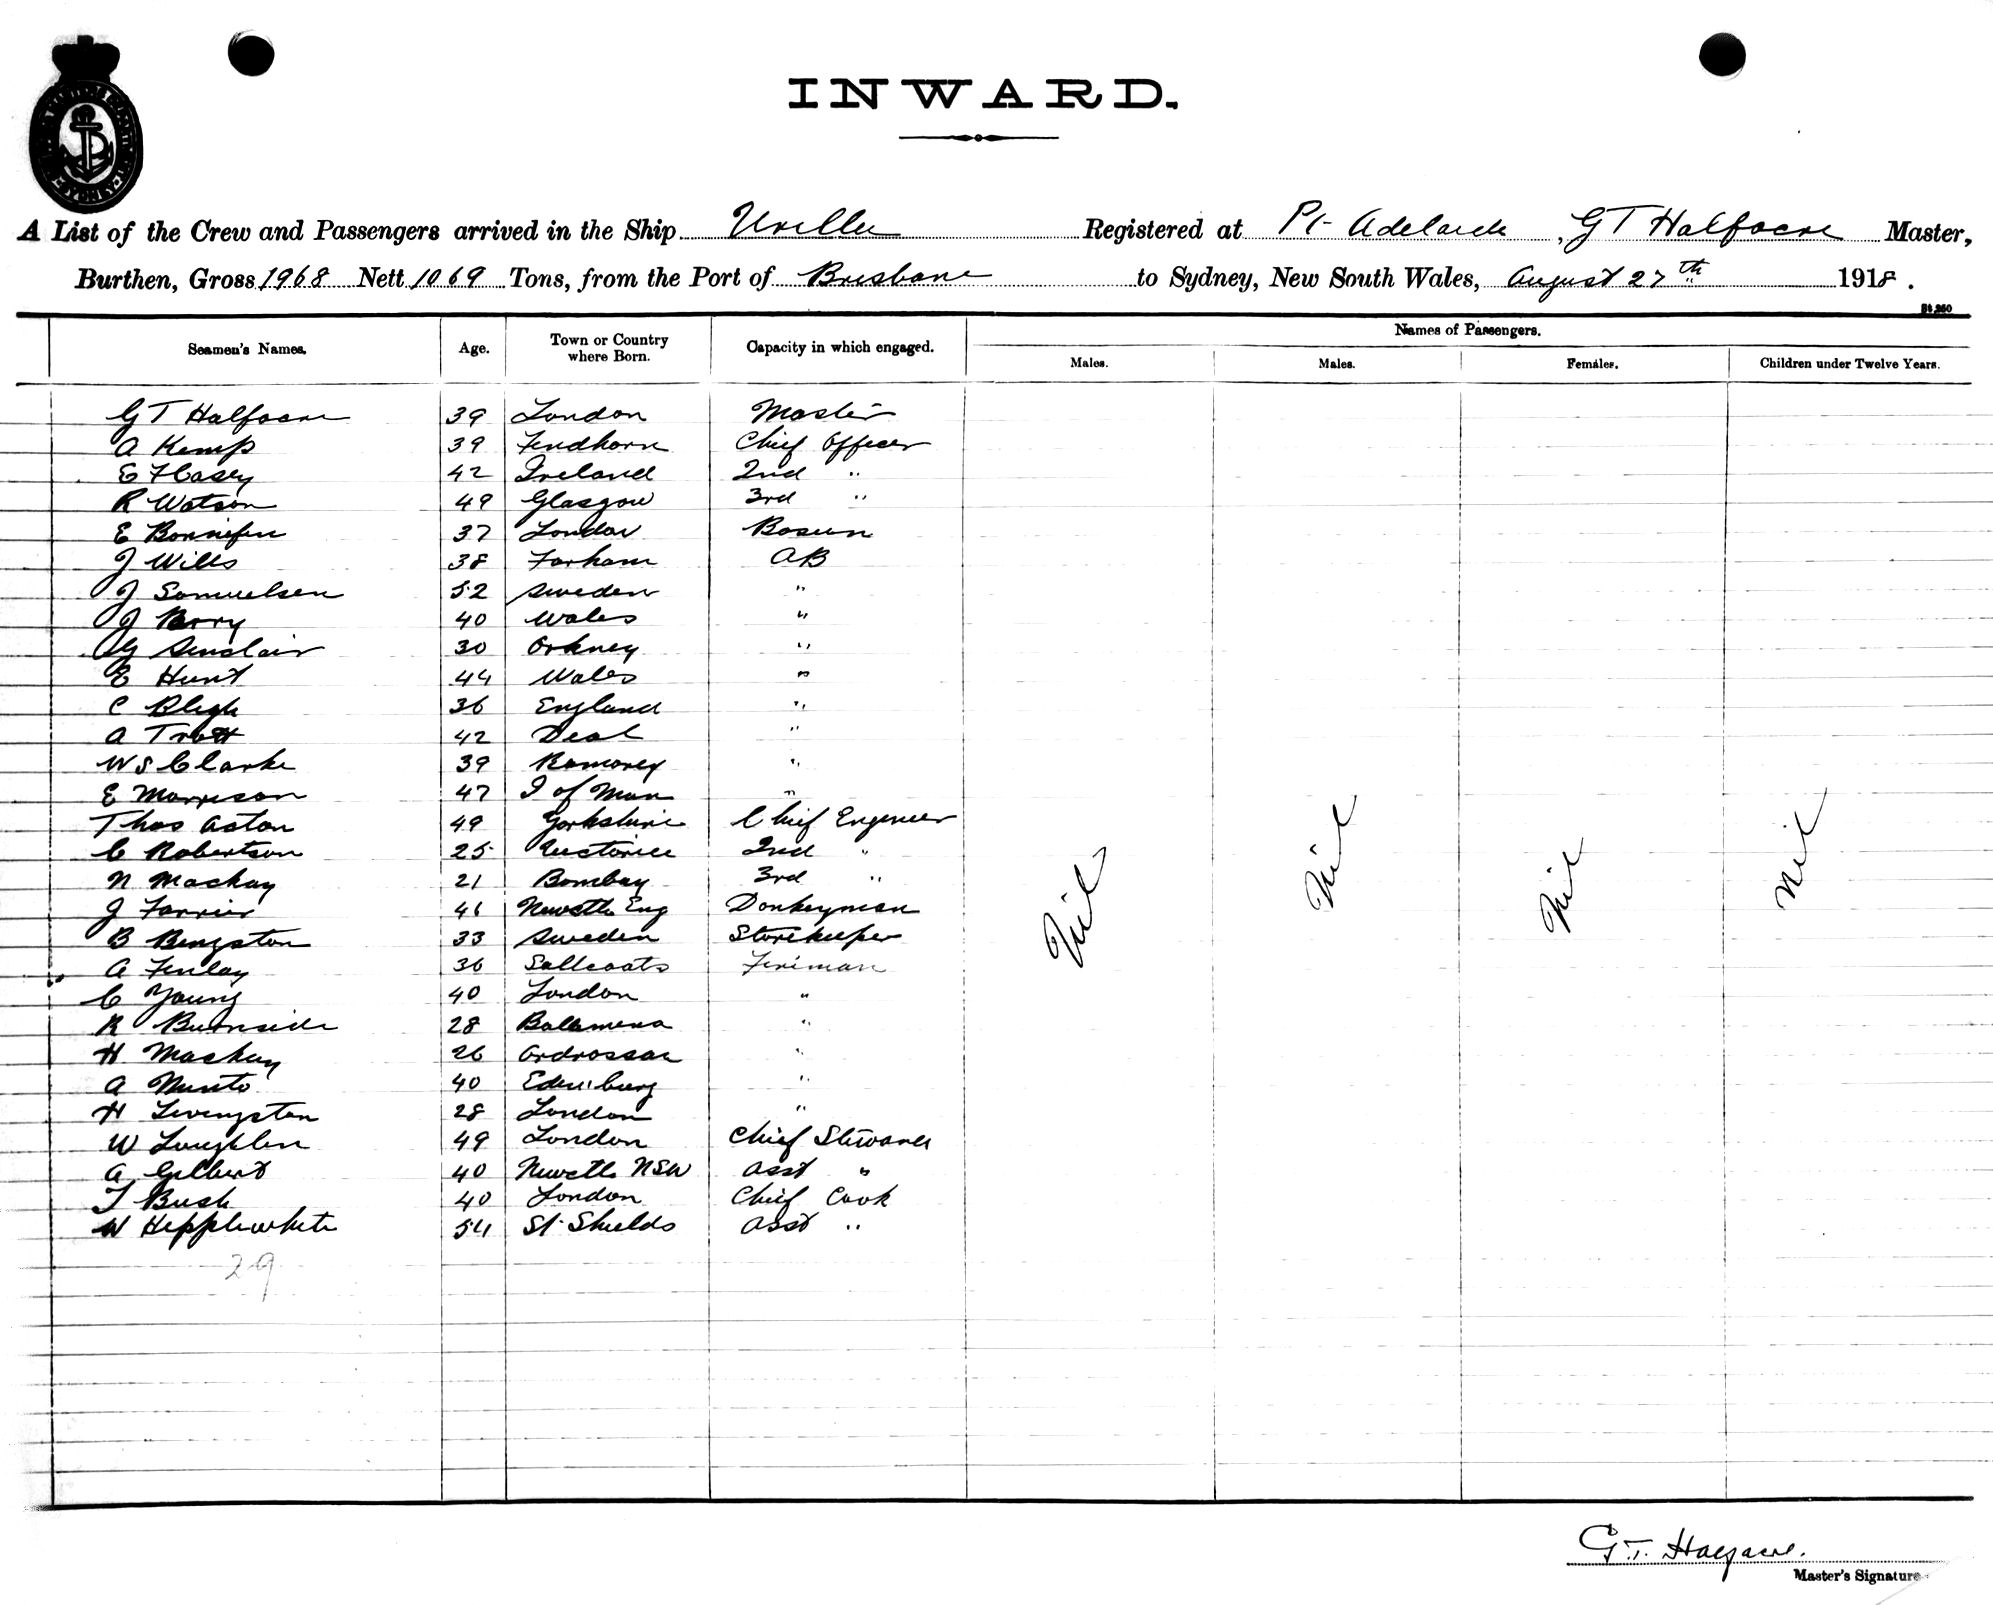 INWARD.
A List of the Crew and Passengers arrived in the Ship Urilla Registered at Pt Adelaide, G T Halfacre Master,
Burthen, Gross 1968 Nett 1069 Tons, from the Port of Brisbane to Sydney, New South Wales, August 27th 1918.
Names of Passengers.
Seamen's Names. Age. Town or Country where Born. Capacity in which engaged. Males. Males. Females. Children under Twelve Years.
G T Halfacre 39 London Master
A Kemp 39 Findhorn Chief Officer
E 42 Ireland 2nd "
R Watson 49 Glasgow 3rd "
E 37 London Bosun
J Wills 38 Farham AB
J Samuelsen 52 Sweden "
J 40 Wales "
G Sinclair 30 Orkney "
E Hunt 44 Wales "
C Bligh 36 England "
A Trott 42 Deal "
W S Clarke 39 "
E Morrison 47 I of Man "
Thos Aston 49 Yorkshire Chief Engineer
C Robertson 25 Victoria 2nd "
N Mackay 21 Bombay 3rd "
J Farrier 46 Newctle Eng Donkeyman
B Bengston 33 Sweden Storekeeper
A Finlay 36 Saltcoats Fireman
C Young 40 London "
R Burnside 28 Balamena "
H Mackay 26 Ardrossan "
A Minto 40 Edinburg "
H Livingston 28 London "
W Loughlin 49 London Chief Steward
A Gilbert 40 Newctle NSW Asst "
T Bush 40 London Chief Cook
W Hepplewhite 54 St Shields Asst "
29
Nil Nil Nil Nil
G. T. Halfacre.
Master's Signature